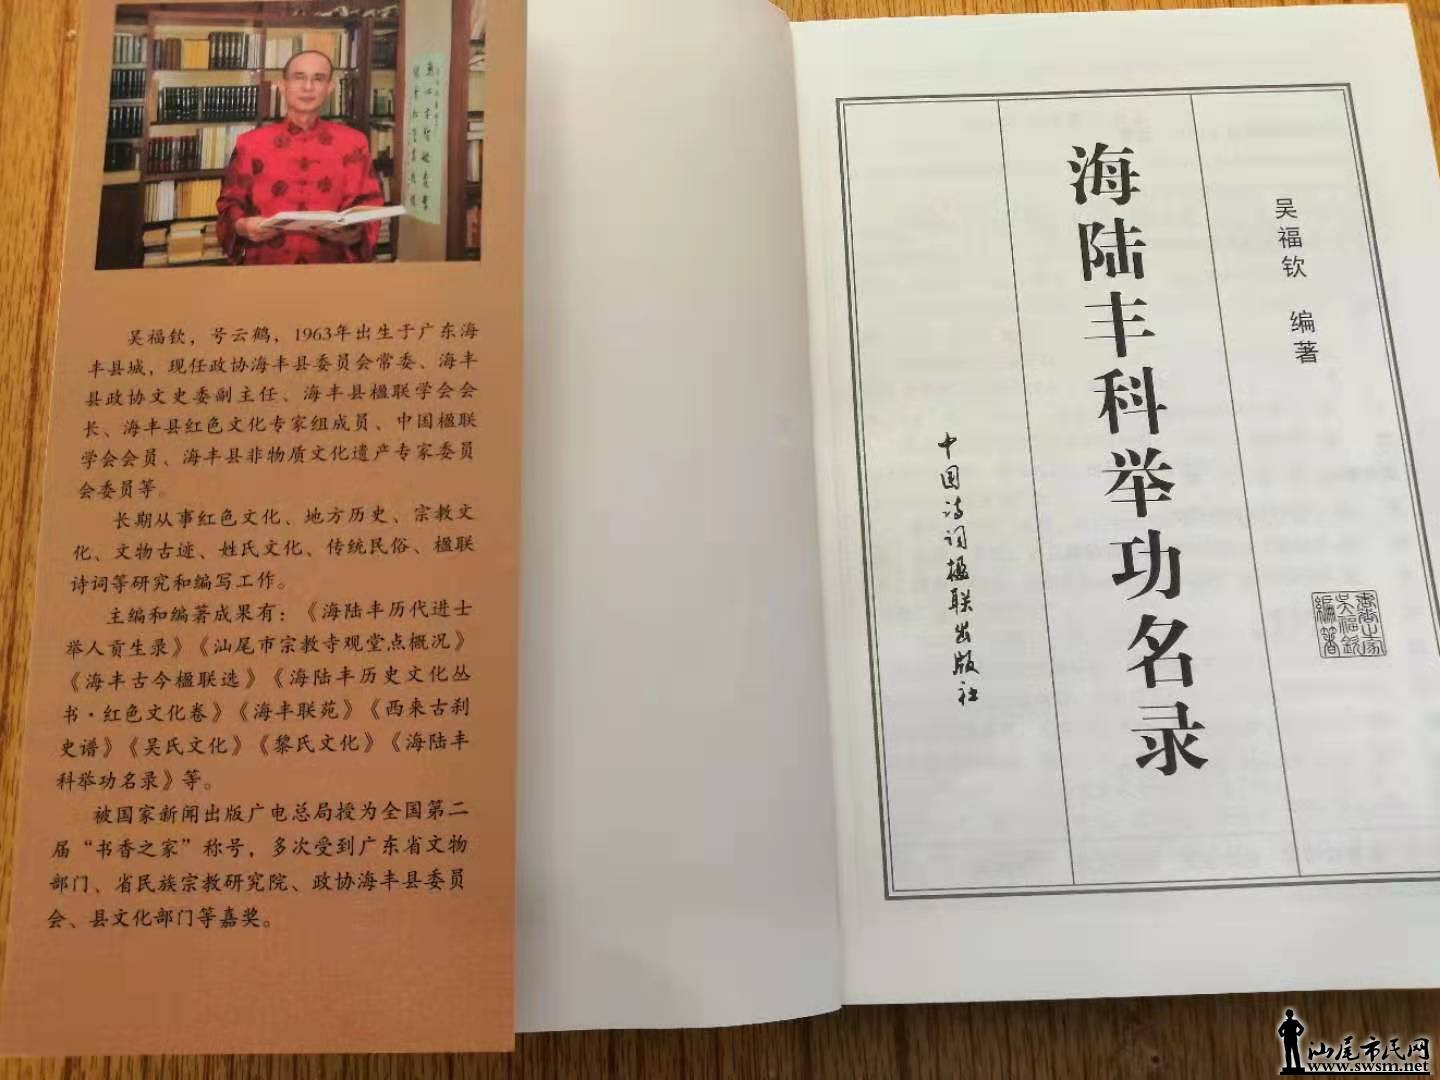 吴福钦，号云鹤，1963年出生于广东海
丰县城，现任政协海丰县委员会常委、海丰
县政协文史委副主任、海丰县楹联学会会
长、海丰县红色文化专家组成员、中国楹联
学会会员、海丰县非物质文化遗产专家委员
会委员等。
长期从事红色文化、地方历史、宗教文
化、文物古迹、姓氏文化、传统民俗、楹联
诗词等研究和编写工作。
主编和编著成果有：《海陆丰历代进士
举人贡生录》《汕尾市宗教寺观堂点概况》
《海丰古今楹联选》《海陆丰历史文化丛
书·红色文化卷》《海丰联苑》《西来古刹
史谱》《吴氏文化》《黎氏文化》《海陆丰
科举功名录》等。
被国家新闻出版广电总局授为全国第二
届“书香之家”称号，多次受到广东省文物
部门、省民族宗教研究院、政协海丰县委员
会、县文化部门等嘉奖。
吴福钦 编著
海陆丰科举功名录
中国诗词楹联出版社
书香之家
吴福钦
编著
汕尾市民网
www.swsm.net